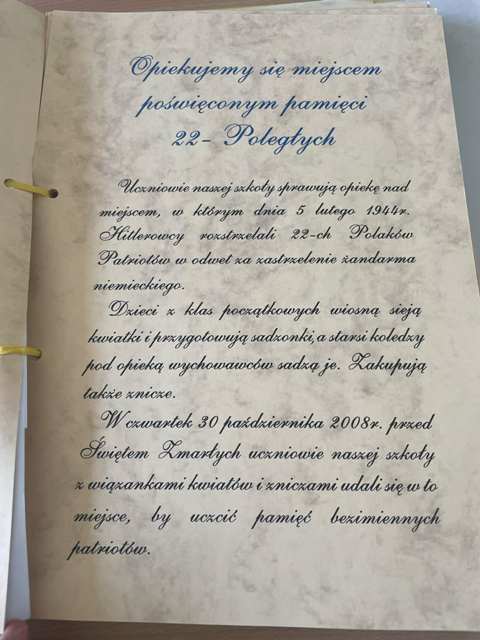 Opiekujemy się miejscem
poświęconym pamięci
22- Poległych
Uczniowie naszej szkoły sprawują opiekę nad
miejscem, w którym dnia 5 lutego 1944r.
Hitlerowcy rozstrzelali 22-ch Polaków
Patriotów w odwet za zastrzelenie żandarma
niemieckiego.
Dzieci z klas początkowych wiosną sieją
kwiatki i przygotowują sadzonki,a starsi koledzy
pod opieką wychowawców sadzą je. Zakupują
także znicze.
W czwartek 30 października 2008r. przed
Świętem Zmarłych uczniowie naszej szkoły
z wiązankami kwiatów i zniczami udali się w to
miejsce, by uczcić pamięć bezimiennych
patriotów.